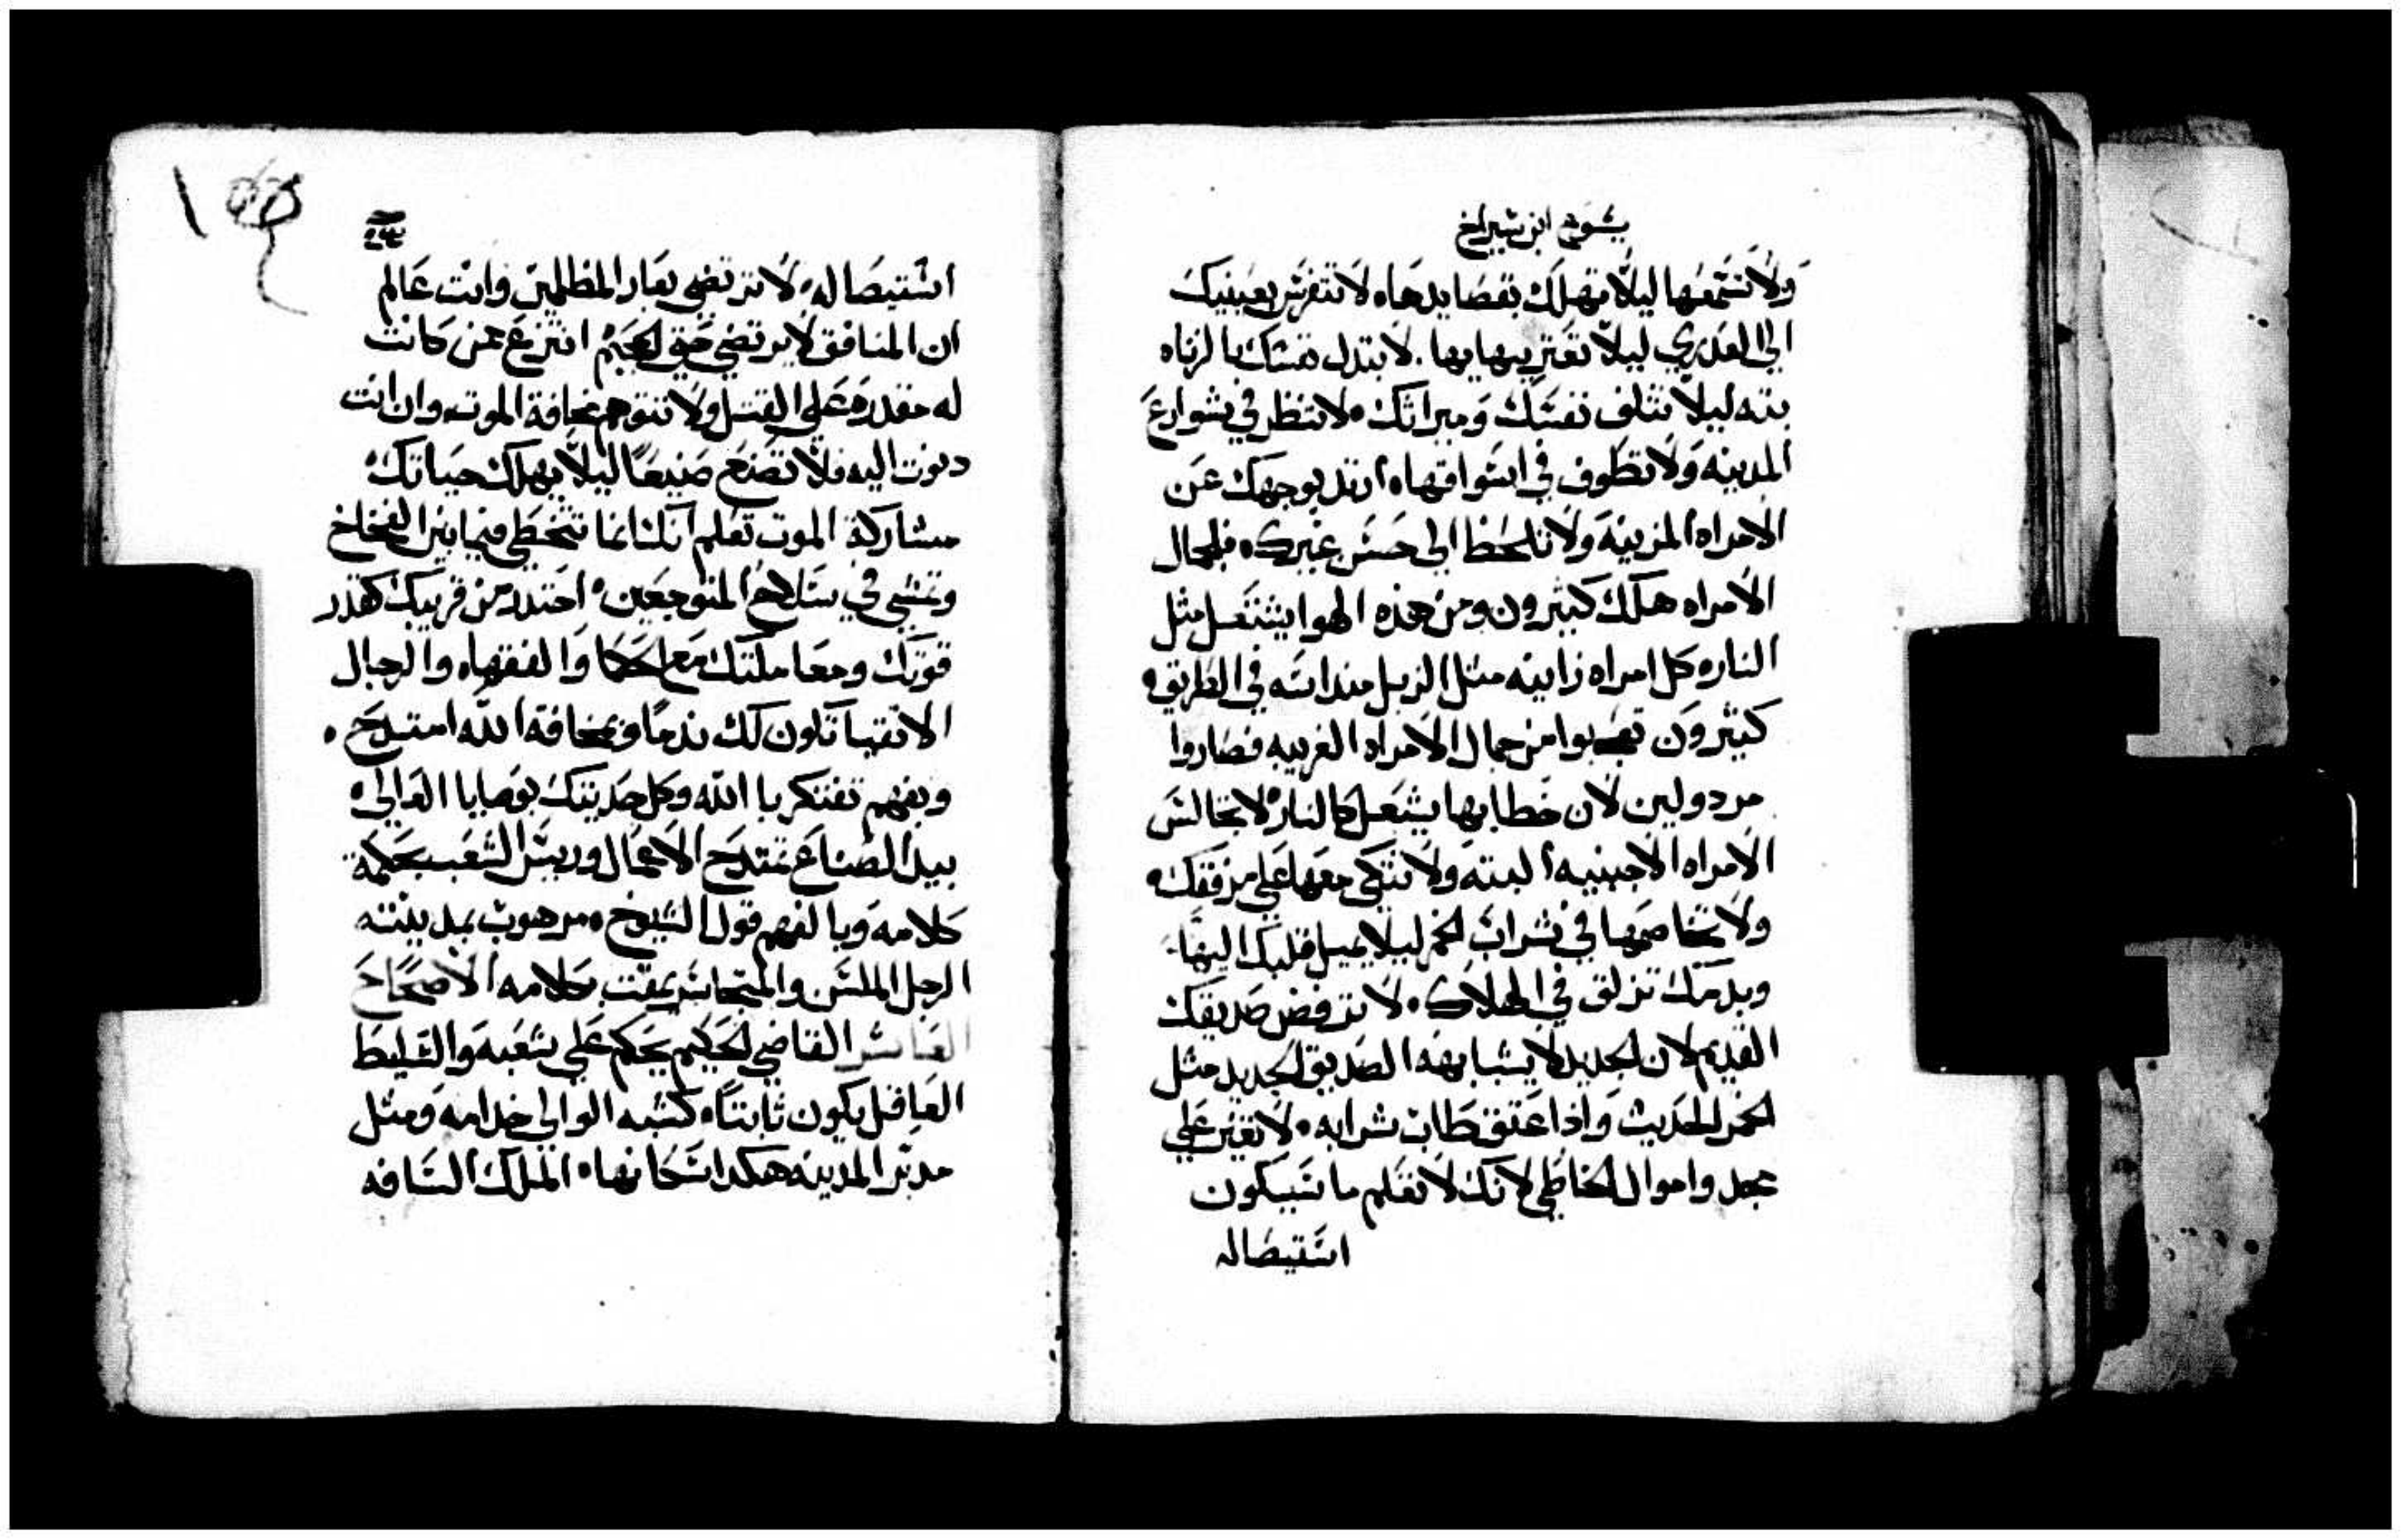 يشوع ابن شيراخ
ولا تسمعها ليلا تهلك بقصايدها. لا تتفرس بعينيك
الي العدري ليلا تعتر ببهايها. لا تبدل نفسك بالزناه
بته ليلا تتلف نفسك وميراتك. لا تنظر في شوارع
المدينه ولا تطوف في اسواقها. ارتد بوجهك عن
الامراه المزينه ولا تلحظ الي حسن غيرك. فلجمال
الامراه هلك كثيرون ومن هذه الهوا يشتعل مثل
النار. كل امراه زانيه مثل الزبل منداسه في الطريق.
كثيرون تعجبوا من جمال الامراه الغريبه فصاروا
مردولين لان خطابها يشعل كالنار. لا تجالس
الامراه الاجنبيه البته ولا تتكي معها علي مرفقك.
ولا تخاصمها في شراب الخمر ليلا يميل قلبك اليها.
وبدمك تزلق في الهلاك. لا ترفض صديقك
القديم لان الجديد لا يشابهه الصديق الجديد مثل
الخمر الحديث واذا عتق طاب شرابه. لا تغير علي
مجد واموال الخاطي لانك لا تعلم ما سيكون
استيصاله
استيصاله. لا ترتضي بعار المظلمين وانت عالم
ان المنافق لا يرتضي حتي الجحيم انتزع عمن كانت
له مقدره علي القتل ولا تتوهم مخافة الموت. وان انت
دنوت اليه فلا تصنع صنيعا ليلا يهلك حياتك.
مشاركة الموت تعلم انك انما تتخطي فيما بين الفخاخ
وتمشي في سلاح المتوجعين. احتدد من قريبك كقدر
قوتك ومعاملتك مع الحكما والفقها. والرجال
الاتقيا تكون لك ندما وبمخافة الله امتدح.
وبفهم تفتكر با الله وكل حديتك بوصايا العالي.
بيد الصناع تمتدح الاعمال وريس الشعب بحكمة
كلامه وبالفهم قول الشيوخ. مرهوب بمدينته
الرجل الملسن والمتجاسر يمقت بكلامه الاصحاح
العاشر القاضي الحكيم يحكم علي شعبه والسليط
العاقل يكون ثابتا. كشبه الوالي خدامه ومثل
مدبر المدينه هكدا سكانها. الملك السافه